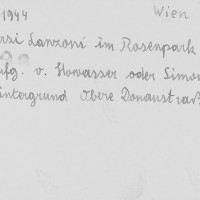 1944 Wien
rsi Lanzoni im Rosenpark
ufg. v. Howasser oder Simon
intergrund Obere Donaustraß